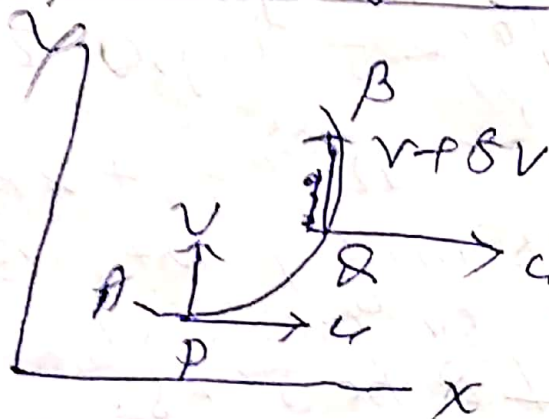 Y
β
V+δV
V
Q
A
u
P
X